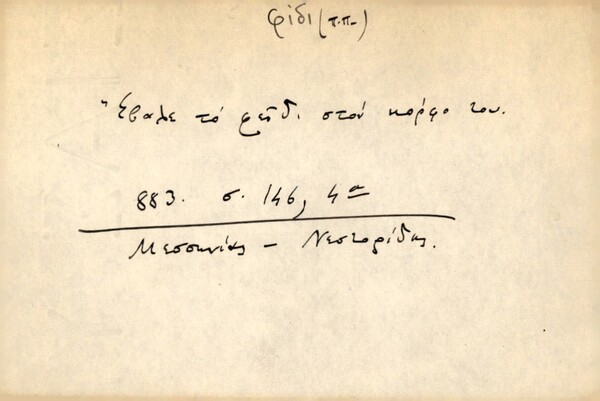 φίδι (π.π.)
Ἔβαλε τό φεῖδι στόν κόρφο του.
883. σ. 146, 4α
Μεσσηνίας - Νεστορίδης.